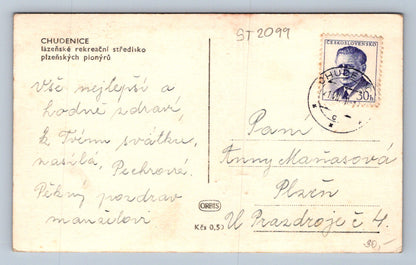 CHUDENICE
lázeňské rekreační středisko
plzeňských pionýrů
ST2099
ČESKOSLOVENSKO
30h
CHUDE
Vše nejlepší a
hodně zdraví,
k Tvému svátku,
nasílá, Pechrová.
Pěkný pozdrav
manželovi
ORBIS
Kčs 0,50
Paní
Anny Maňasová
Plzeň
U Prazdroje č 4.
30,-